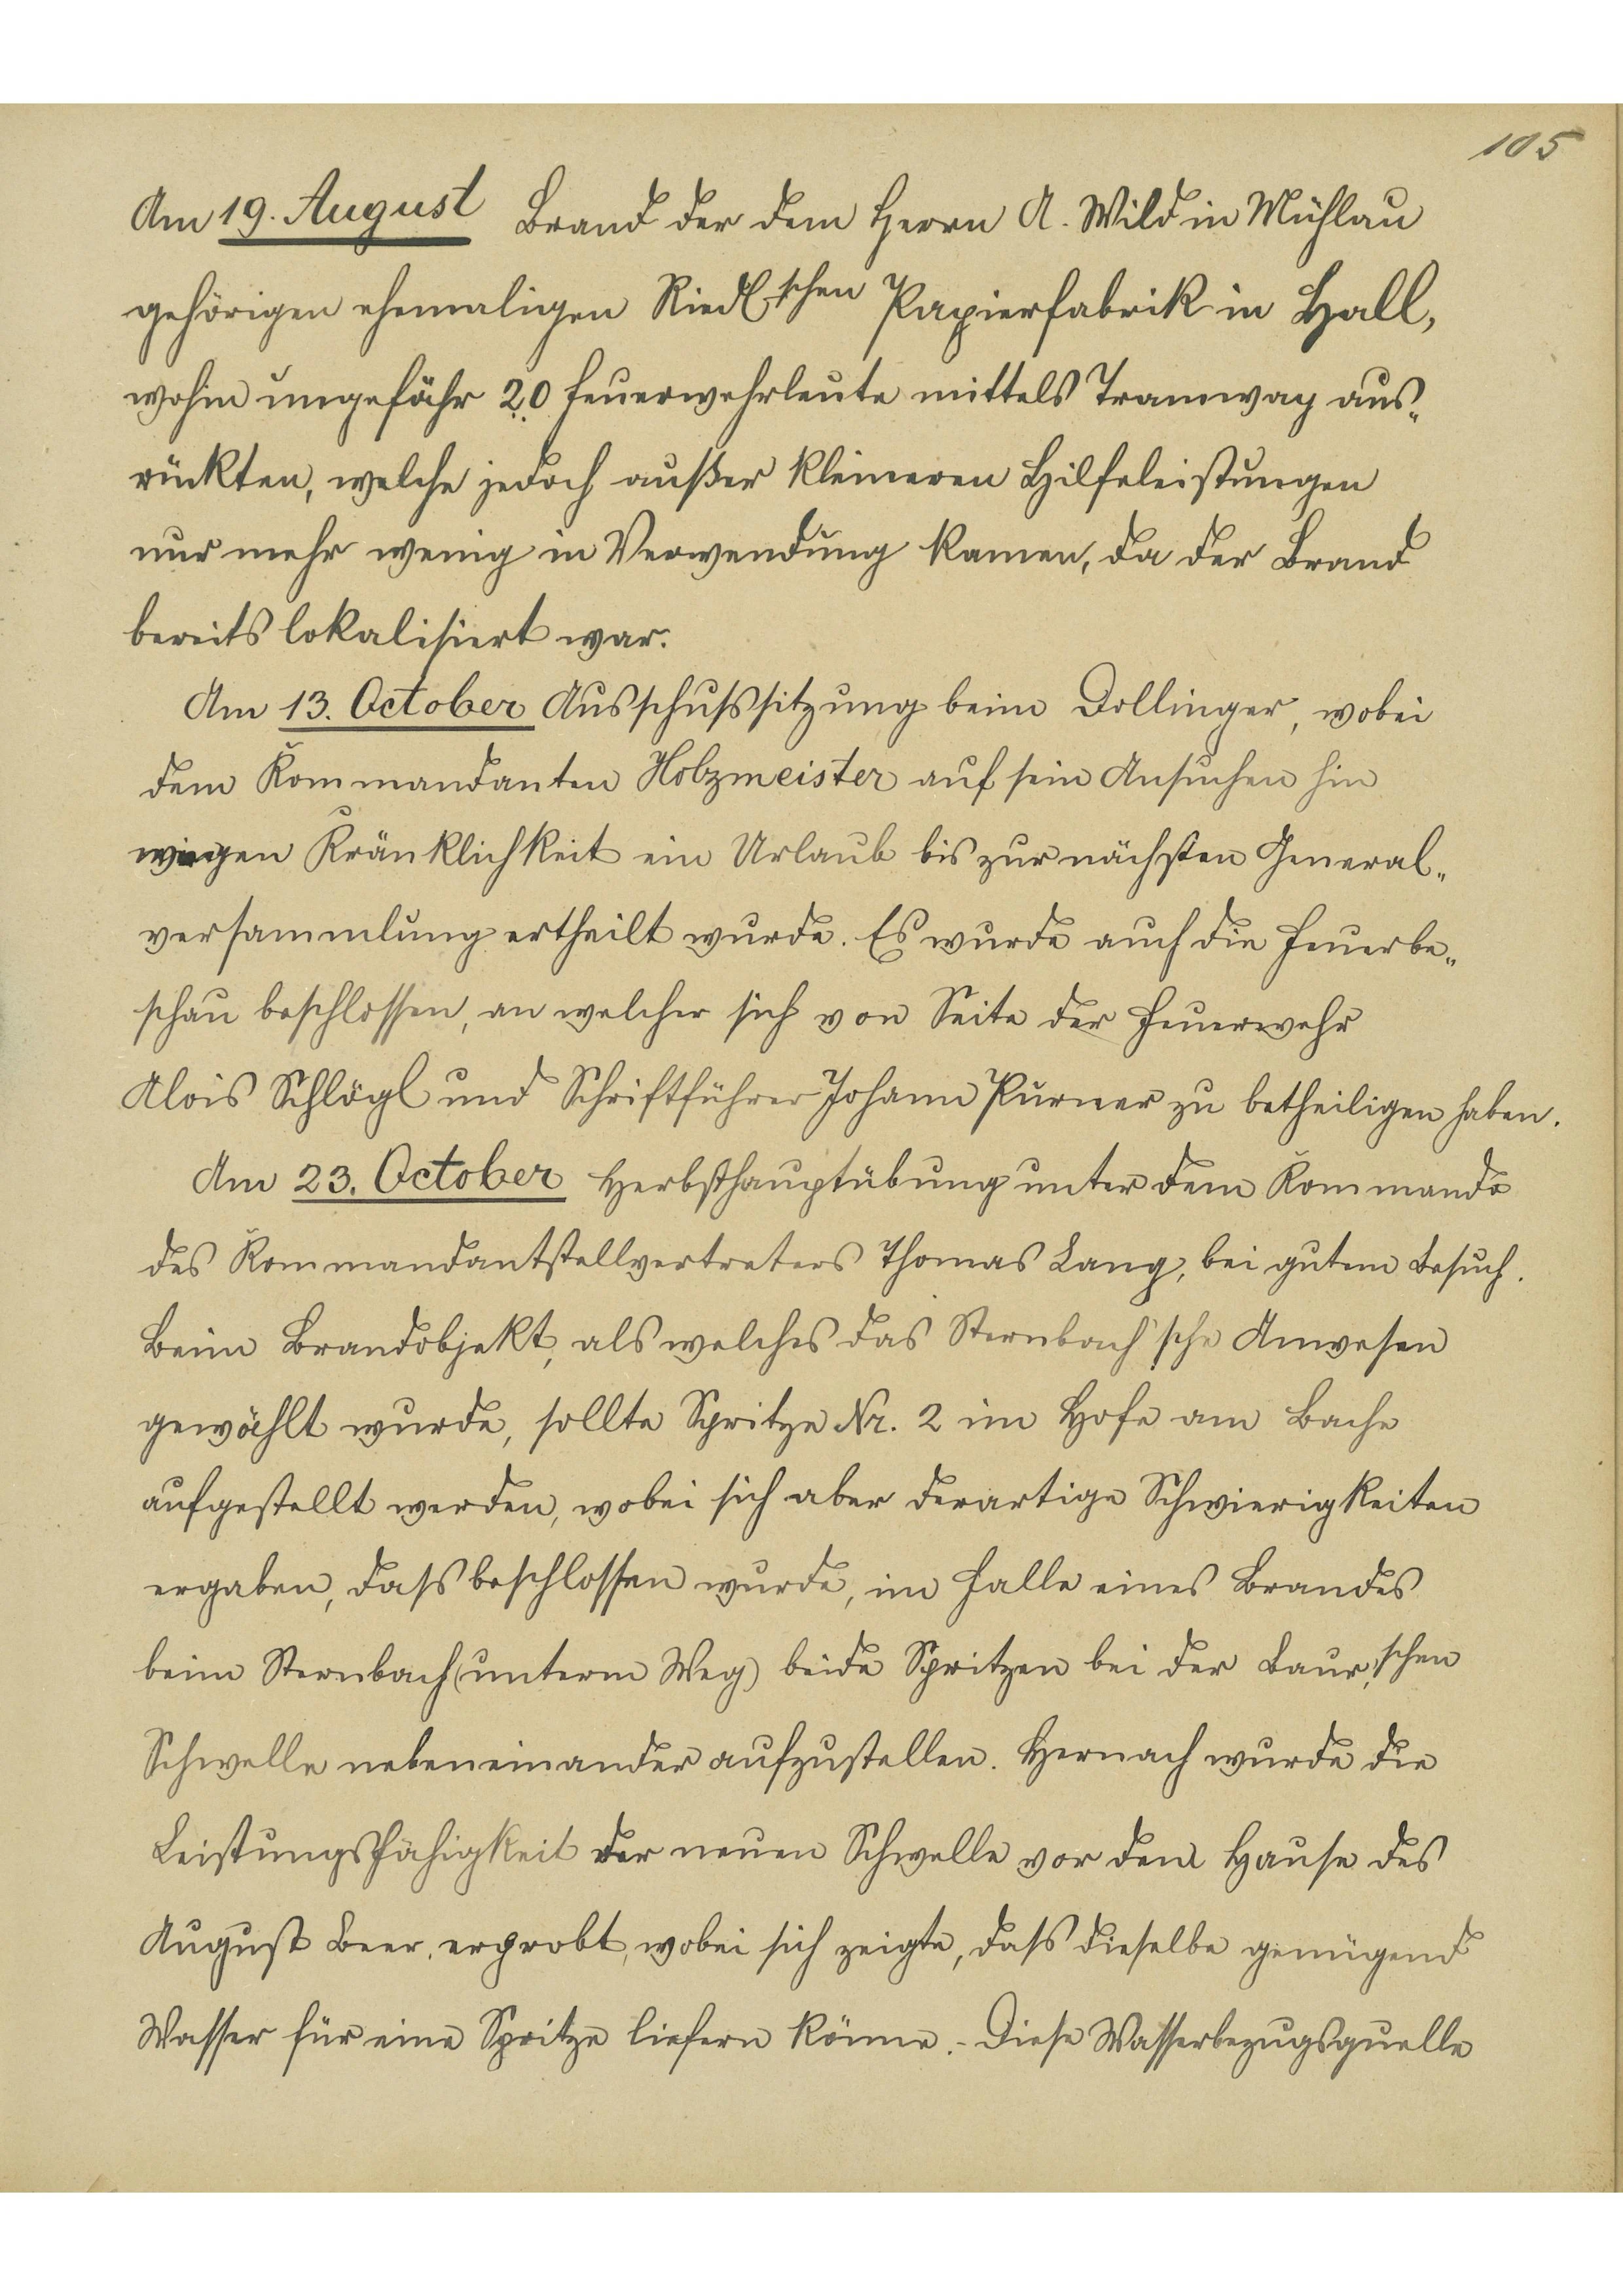 105
Am 19. August Brand der dem Herrn A. Wild in Mühlau
gehörigen ehemaligen Riedl'schen Papierfabrik in Hall,
wohin ungefähr 20 Feuerwehrleute mittels Tramway aus„
rückten, welche jedoch außer kleineren Hilfeleistungen
nur mehr wenig in Verwendung kamen, da der Brand
bereits lokalisiert war.
Am 13. October Ausschußsitzung beim Dollinger, wobei
dem Kommandanten Holzmeister auf sein Ansuchen hin
wegen Kränklichkeit ein Urlaub bis zur nächsten General„
versammlung ertheilt wurde. Es wurde auch die Feuerbe„
schau beschlossen, an welcher sich von Seite der Feuerwehr
Alois Schlögl und Schriftführer Johann Purner zu betheiligen haben.
Am 23. October Herbsthauptübung unter dem Kommando
des Kommandantstellvertreters Thomas Lang, bei gutem Besuch.
Beim Brandobjekt, als welches das Sternbach'sche Anwesen
gewählt wurde, sollte Spritze Nr. 2 im Hofe am Bache
aufgestellt werden, wobei sich aber derartige Schwierigkeiten
ergaben, dass beschlossen wurde, im Falle eines Brandes
beim Sternbach (unterm Weg) beide Spritzen bei der Baur'schen
Schwelle nebeneinander aufzustellen. Hernach wurde die
Leistungsfähigkeit der neuen Schwelle vor dem Hause des
August Beer, erprobt, wobei sich zeigte, dass dieselbe genügend
Wasser für eine Spritze liefern könne. - Diese Wasserbezugsquelle